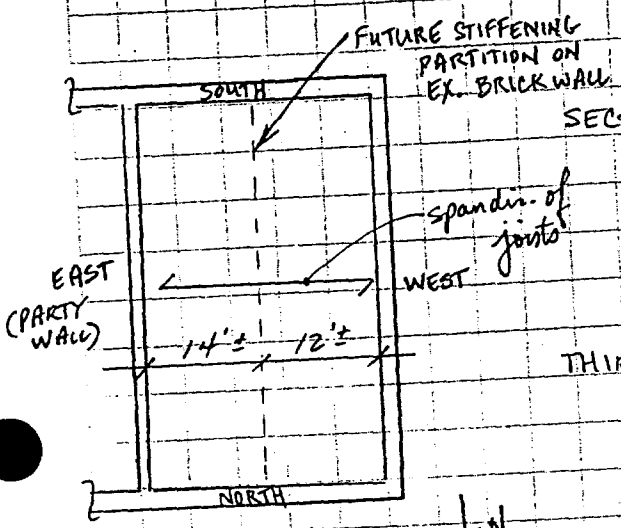 FUTURE STIFFENING
PARTITION ON
EX. BRICK WALL
SOUTH
SEC
span dir. of
joists
EAST
(PARTY
WALL)
WEST
14'±
12'±
THI
NORTH